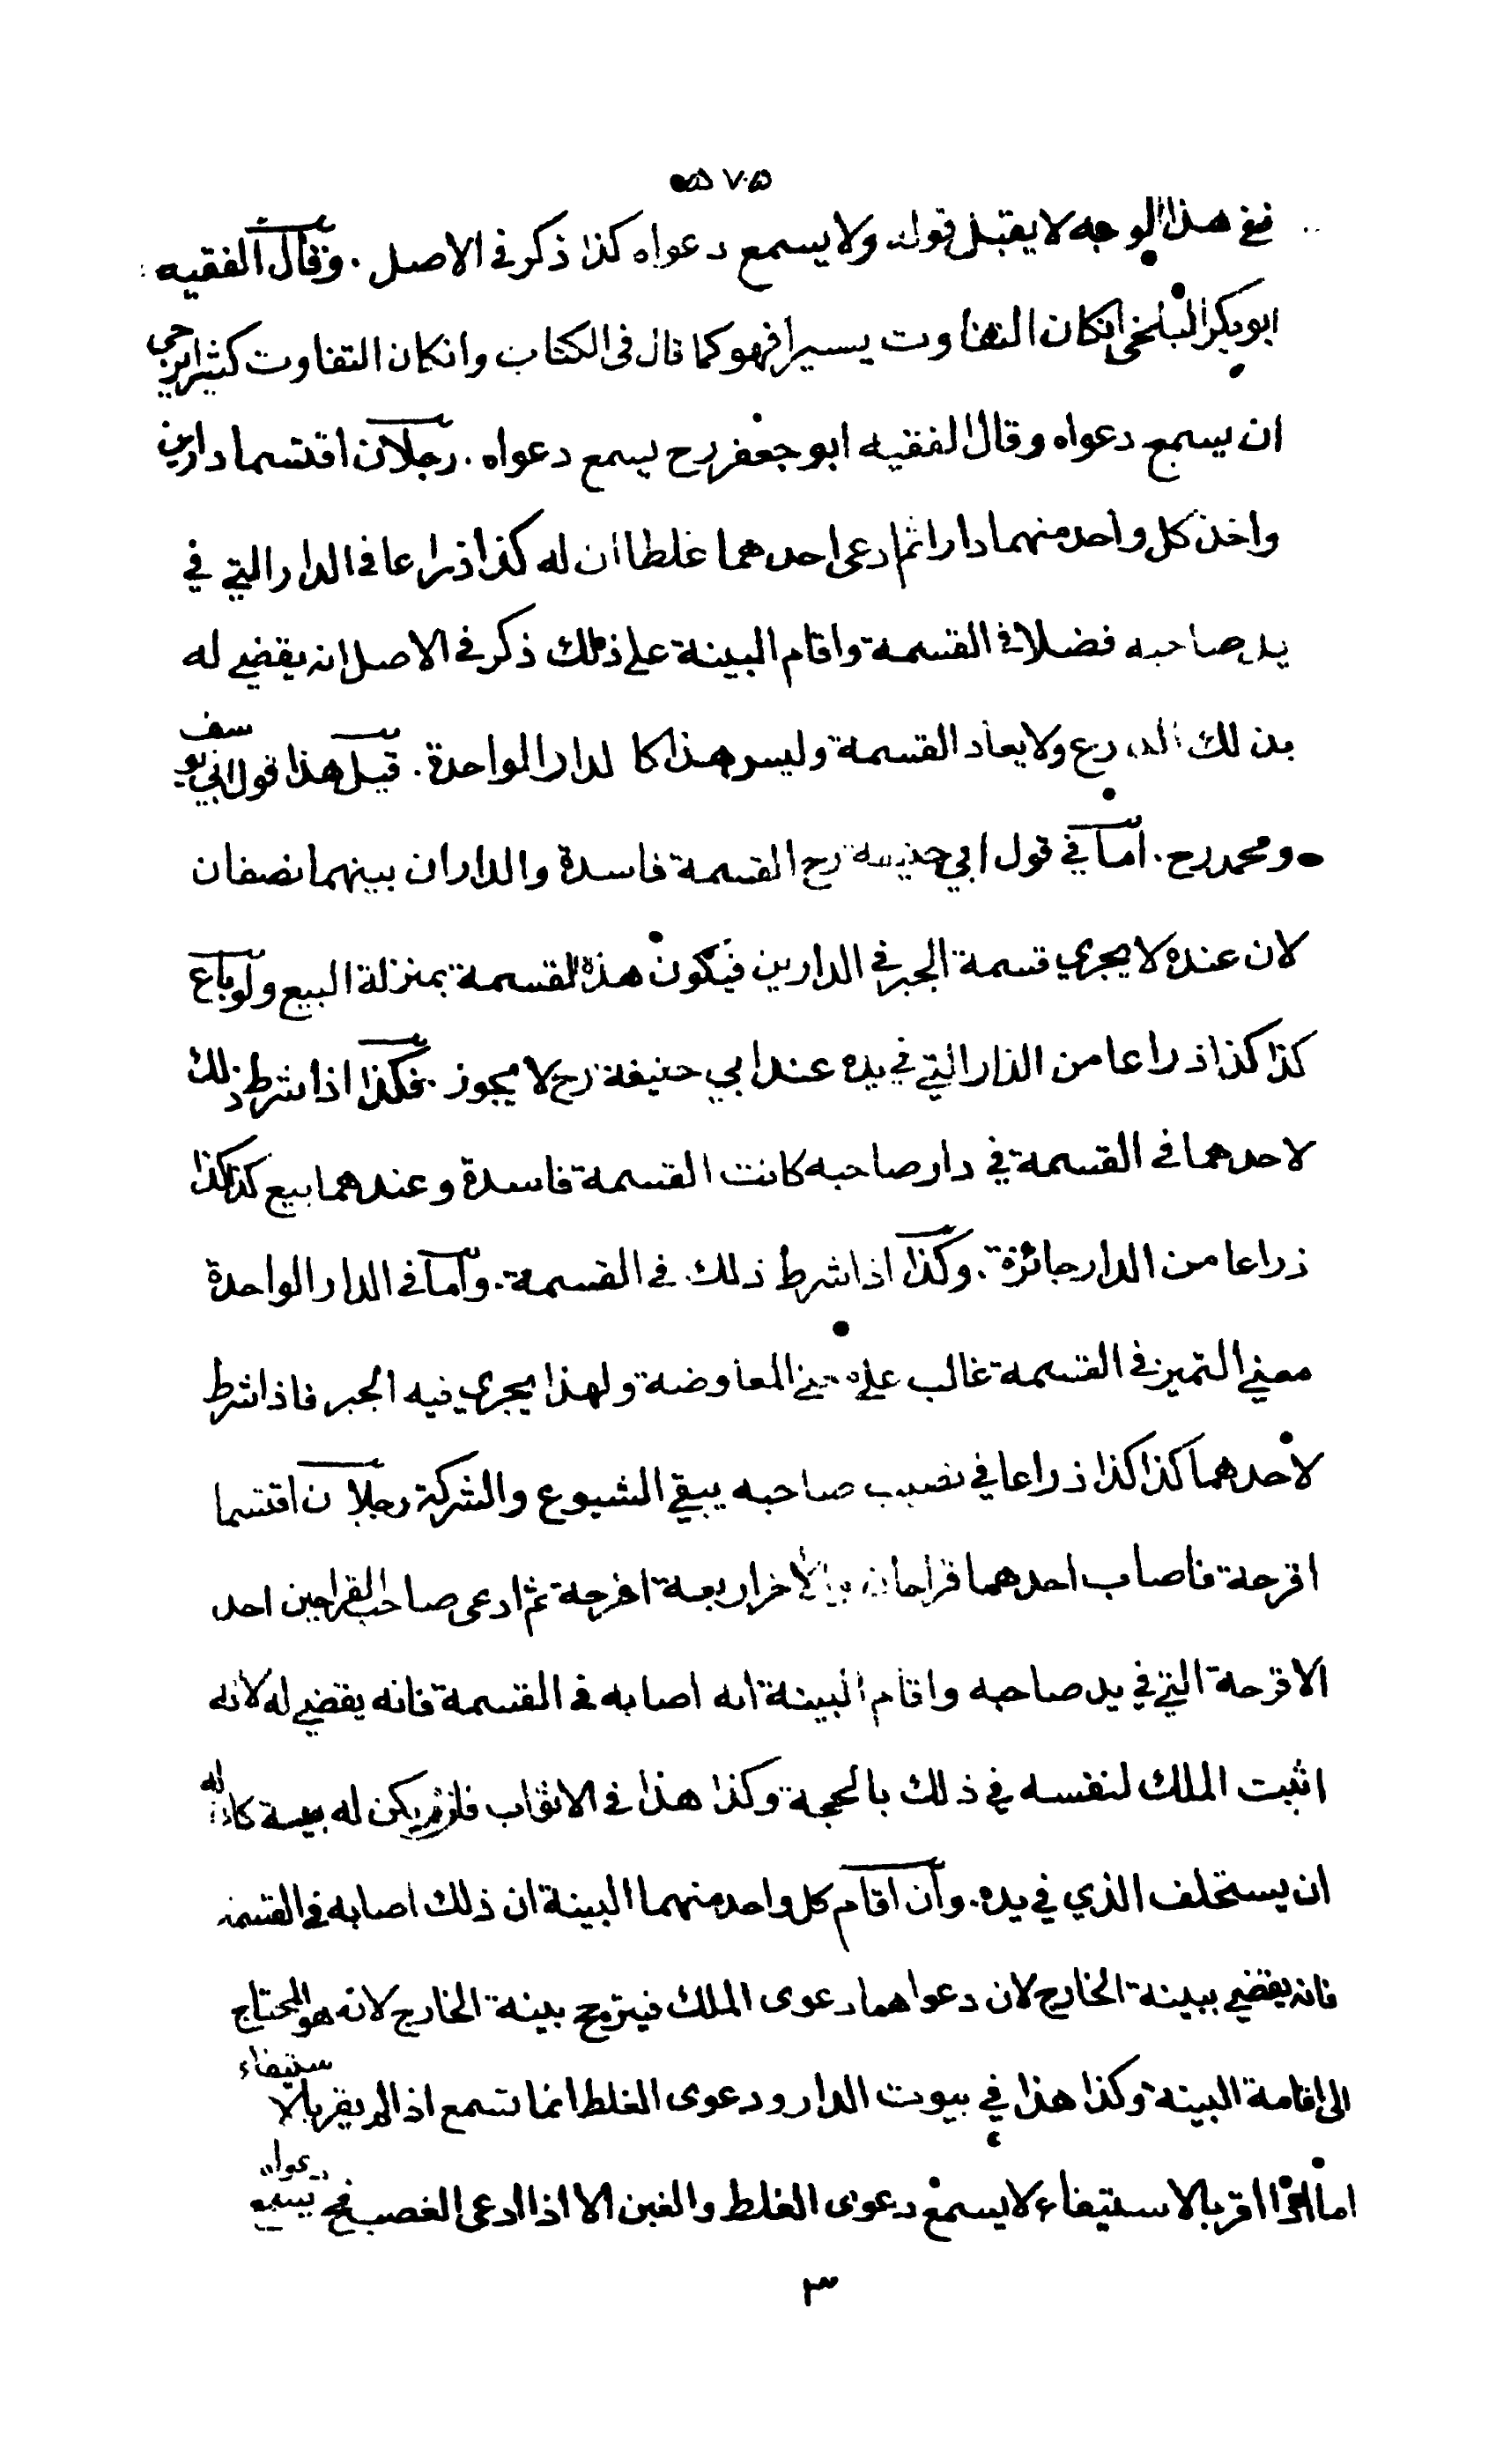 ٧٠٥
ففى هذا الوجه لا يقبل قوله ولا يسمع دعواه كذا ذكر فى الاصل . وقال الفقيه
ابو بكر البلخى انكان التفاوت يسيرا فهو كما قال فى الكتاب وانكان التفاوت كثيرا
ان يسمع دعواه وقال الفقيه ابو جعفر رح يسمع دعواه . رجلان اقتسما دارين
واخذ كل واحد منهما دارا ثم ادعى احدهما غلطا ان له كذا ذراعا فى الدار التي في
يد صاحبه فضلا فى القسمة واقام البينة على ذلك ذكر فى الاصل انه يقضي له
بذلك الذرع ولا يعاد القسمة وليس هذا كالدار الواحدة . قيل هذا قول ابي يوسف
ومحمد رح . اما في قول ابي حنيفة رح القسمة فاسدة والداران بينهما نصفان
لان عنده لا يجري قسمة الجبر فى الدارين فيكون هذه القسمة بمنزلة البيع ولو باع
كذا كذا ذراعا من الدار التي في يده عند ابي حنيفة رح لا يجوز . فكذا اذا شرط ذلك
لاحدهما فى القسمة في دار صاحبه كانت القسمة فاسدة وعندهما بيع كذا كذا
ذراعا من الدار جائزة . وكذا اذا شرط ذلك فى القسمة . واما فى الدار الواحدة
معنى التميز فى القسمة غالب على معنى المعاوضة ولهذا يجري فيه الجبر فاذا شرط
لاحدهما كذا كذا ذراعا في نصيب صاحبه يبقي الشيوع والشركة رجلان اقتسما
اقرحة فاصاب احدهما قراحان والآخر اربعة اقرحة ثم ادعى صاحب القراحين احد
الاقرحة التي في يد صاحبه واقام البينة انه اصابه فى القسمة فانه يقضي له لانه
اثبت الملك لنفسه في ذلك بالحجة وكذا هذا فى الاثواب فان لم يكن له بينة كان له
ان يستحلف الذي في يده . وان اقام كل واحد منهما البينة ان ذلك اصابه فى القسمة
فانه يقضي ببينة الخارج لان دعواهما دعوى الملك فيترجح بينة الخارج لانه هو المحتاج
الى اقامة البينة وكذا هذا في بيوت الدار ودعوى الغلط انما تسمع اذا لم يقر بالاستيفاء
اما اذا اقر بالاستيفاء لا يسمع دعوى الغلط والغبن الا اذا ادعى الغصب فح يسمع دعواه